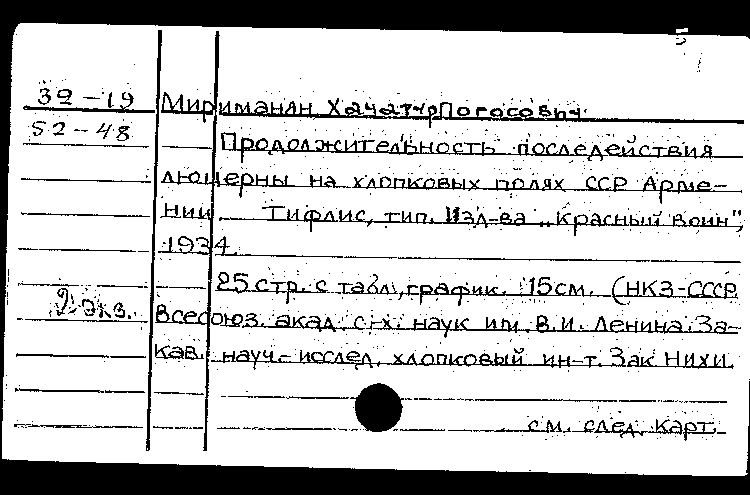 5
39-19 Мириманян Хачатур Погосович.
52-48
Продолжительность последействия
люцерны на хлопковых полях ССР Арме-
нии. Тифлис, тип. Изд-ва "Красный воин",
1934.
25 стр. с табл., график. 15см. (НКЗ-СССР.
2 экз. Всесоюз. акад. с-х. наук им. В.И. Ленина. За-
кав. науч.-исслед. хлопковый ин-т. Зак НИХИ.
см. след. карт.